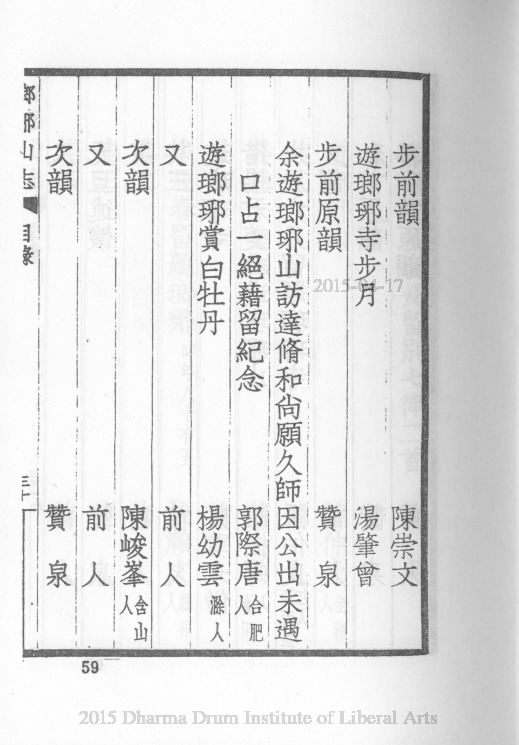 步前韻 陳崇文
遊瑯琊寺步月 湯肇曾
步前原韻 贊泉
余遊瑯琊山訪達脩和尚願久師因公出未遇
口占一絕藉留紀念 郭際唐 合肥人
遊瑯琊賞白牡丹 楊幼雲 滁人
又 前人
次韻 陳峻峯 含山人
又 前人
次韻 贊泉
瑯琊山志 目錄 三十
59
2015-04-17
2015 Dharma Drum Institute of Liberal Arts